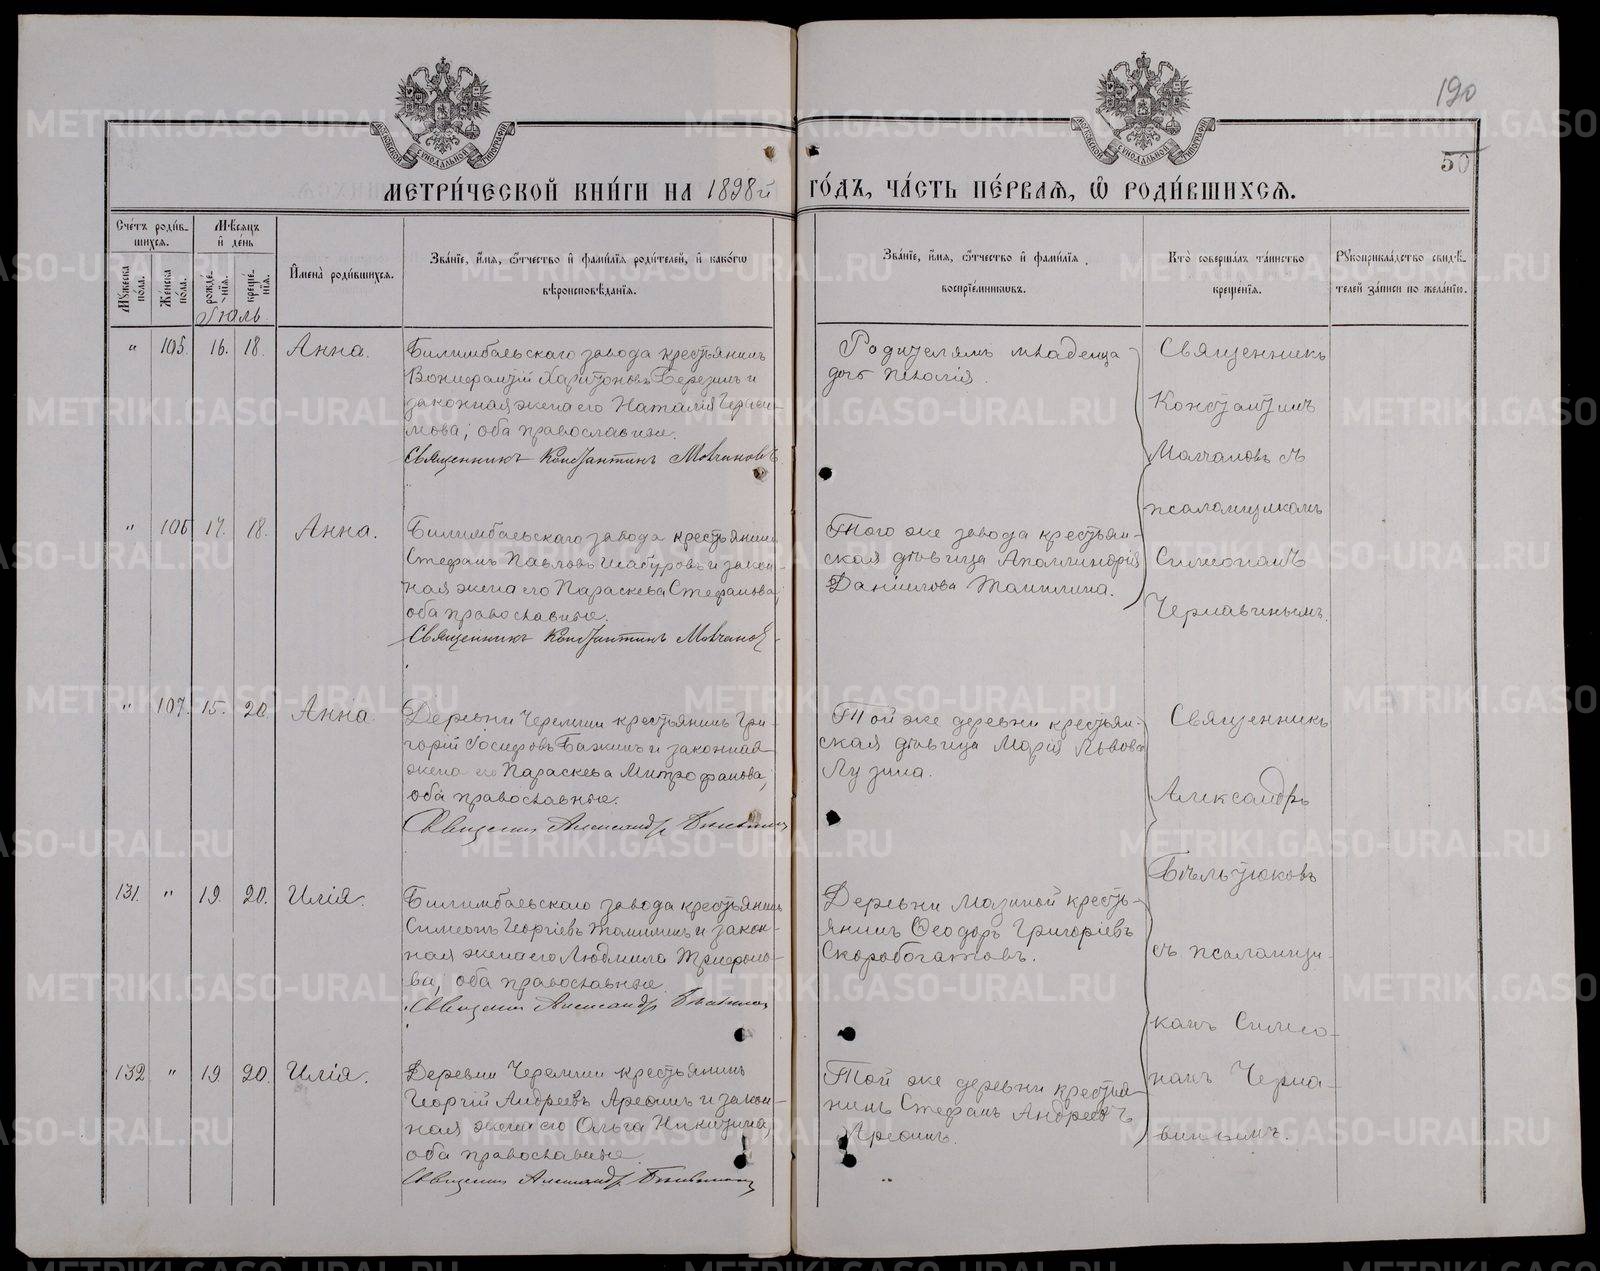 190
50
МЕТРИ́ЧЕСКОЙ КНИ́ГИ НА 1898й ГО́ДЪ, ЧА́СТЬ ПЕ́РВАѦ, Ѽ РОДИ́ВШИХСѦ.
Сче́тъ роди́в-
шихсѧ.
Мꙋжеска по́ла.
Женска по́ла.
Мѣ́сѧцъ
и҆ де́нь
рожде́-
нїѧ.
креще́-
нїѧ.
И҆мена̀ роди́вшихсѧ.
Зва́нїе, и҆́мѧ, ѻ҆́тчество и҆ фами́лїѧ роди́телей, и҆ како́гѡ
вѣроисповѣ́данїѧ.
Зва́нїе, и҆́мѧ, ѻ҆́тчество и҆ фами́лїѧ
воспрїе́мникѡвъ.
Кто̀ соверша́лъ та́инство
креще́нїѧ.
Рꙋкоприкла́дство свидѣ́-
телей за́писи по жела́нїю.
Іюль
" 105. 16. 18. Анна.
Билимбаевскаго завода крестьянинъ
Вонифатій Харитоновъ Березинъ и
законная жена его Наталія Гераси-
мова; оба православные.
Священникъ Константинъ Молчановъ
Родителямъ младенца
дочь
Священникъ
Константинъ
Молчановъ съ
псаломщикомъ
Симеономъ
Чернавинымъ.
" 106 17. 18. Анна.
Билимбаевскаго завода крестьянинъ
Стефанъ Павловъ Шабуровъ и закон-
ная жена его Параскева Стефанова,
оба православные.
Священникъ Константинъ Молчановъ
Того же завода крестьян-
ская дѣвица Аполлинарія
Даніилова Томилина.
" 107. 15. 20. Анна
Деревни Черемши крестьянинъ Гри-
горій Іосифовъ Бажинъ и законная
жена его Параскева Митрофанова,
оба православные.
Священникъ Александръ
Той же деревни крестьян-
ская дѣвица Марія Львова
Лузина.
Священникъ
Александръ
Бѣльтюковъ
съ псаломщи-
комъ Симео-
номъ Черна-
винымъ.
131. " 19. 20. Илія.
Билимбаевскаго завода крестьянинъ
Симеонъ Георгіевъ Томилинъ и закон-
ная жена его Людмила Трифоно-
ва, оба православные.
Священникъ Александръ
Деревни Мазиной кресть-
янинъ Ѳеодоръ Григоріевъ
Скоробогатовъ.
132 " 19. 20. Илія.
Деревни Черемши крестьянинъ
Георгій Андреевъ Аредин и закон-
ная жена его Ольга Никитина,
оба православные.
Священникъ Александръ
Той же деревни крестья-
нинъ Стефанъ Андреевъ